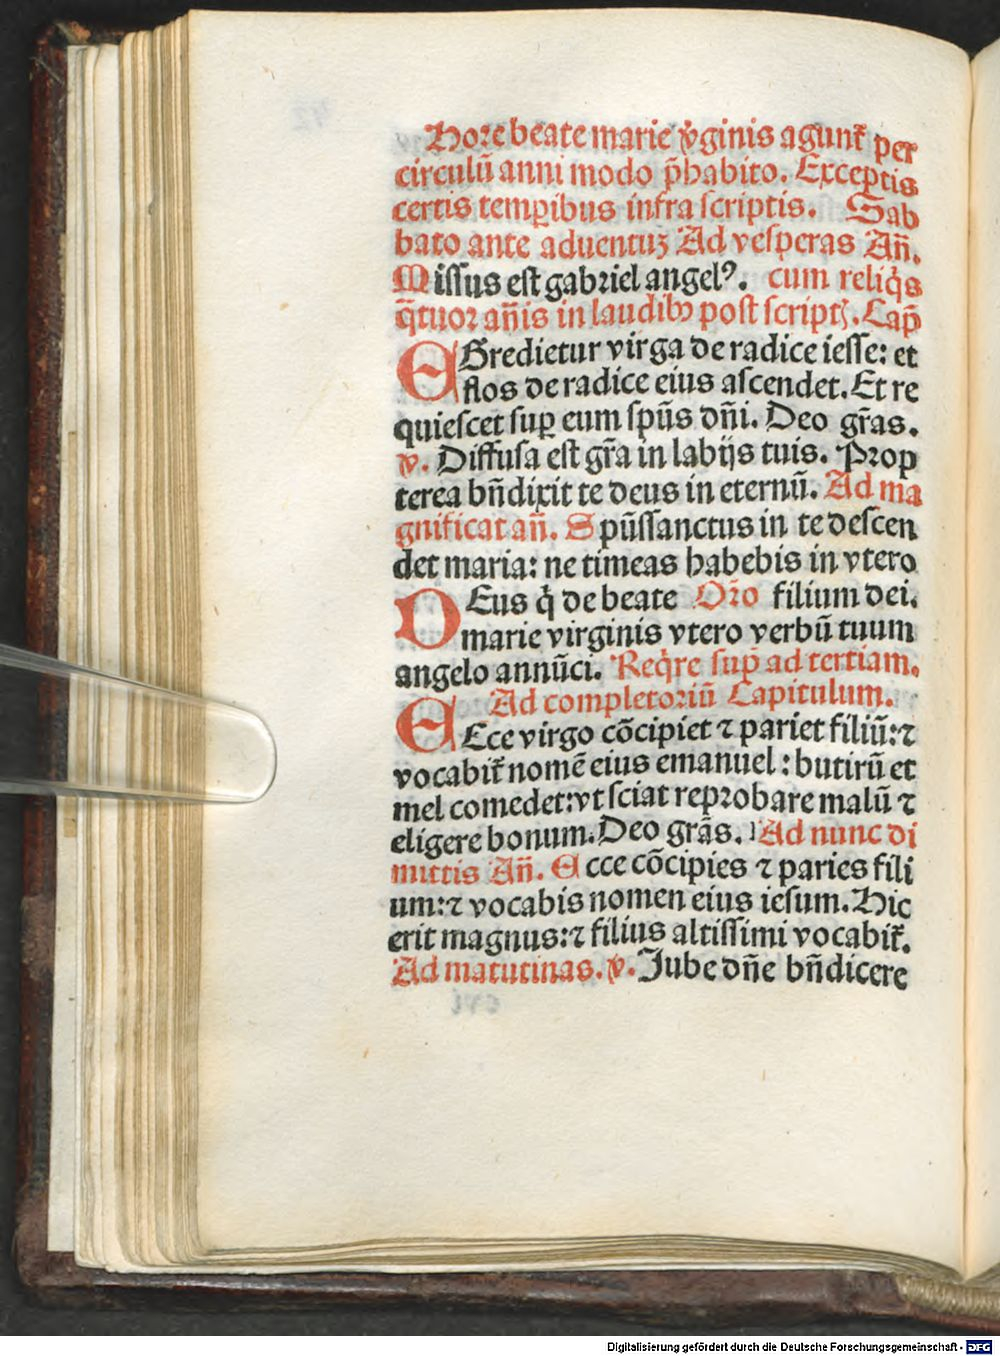 Hore beate marie v̾ginis agunt᷑ per
circulū anni modo p̄habito. Exceptis
certis temꝑibus infra scriptis. Sab
bato ante aduentuꝫ Ad vesperas An̄.
Missus est gabriel angelꝰ. cum reliq̇s
q̄tuor an̄is in laudibꝫ post scriptꝭ. Cap̄
EGredietur virga de radice iesse: et
flos de radice eius ascendet. Et re
quiescet suꝑ eum sp̄ūs dn̄i. Deo gr̄as.
v. Diffusa est gr̄a in labijs tuis. Prop
terea bn̄dixit te deus in eternū. Ad ma
gnificat an̄. Sp̄ūssanctus in te descen
det maria: ne timeas habebis in vtero
DEus q̇ de beate Or̄o filium dei.
marie virginis vtero verbū tuum
angelo annūci. Req̇re sup̄ ad tertiam.
Ad completoriū Capitulum.
EEce virgo cōcipiet ⁊ pariet filiū: ⁊
vocabit᷑ nomē eius emanuel: butirū et
mel comedet: vt sciat reprobare malū ⁊
eligere bonum. Deo grās. Ad nunc di
mittis An̄. Ecce cōcipies ⁊ paries fili
um: ⁊ vocabis nomen eius iesum. Hic
erit magnus: ⁊ filius altissimi vocabit᷑.
Ad matutinas. v. Jube dn̄e bn̄dicere
Digitalisierung gefördert durch die Deutsche Forschungsgemeinschaft - DFG